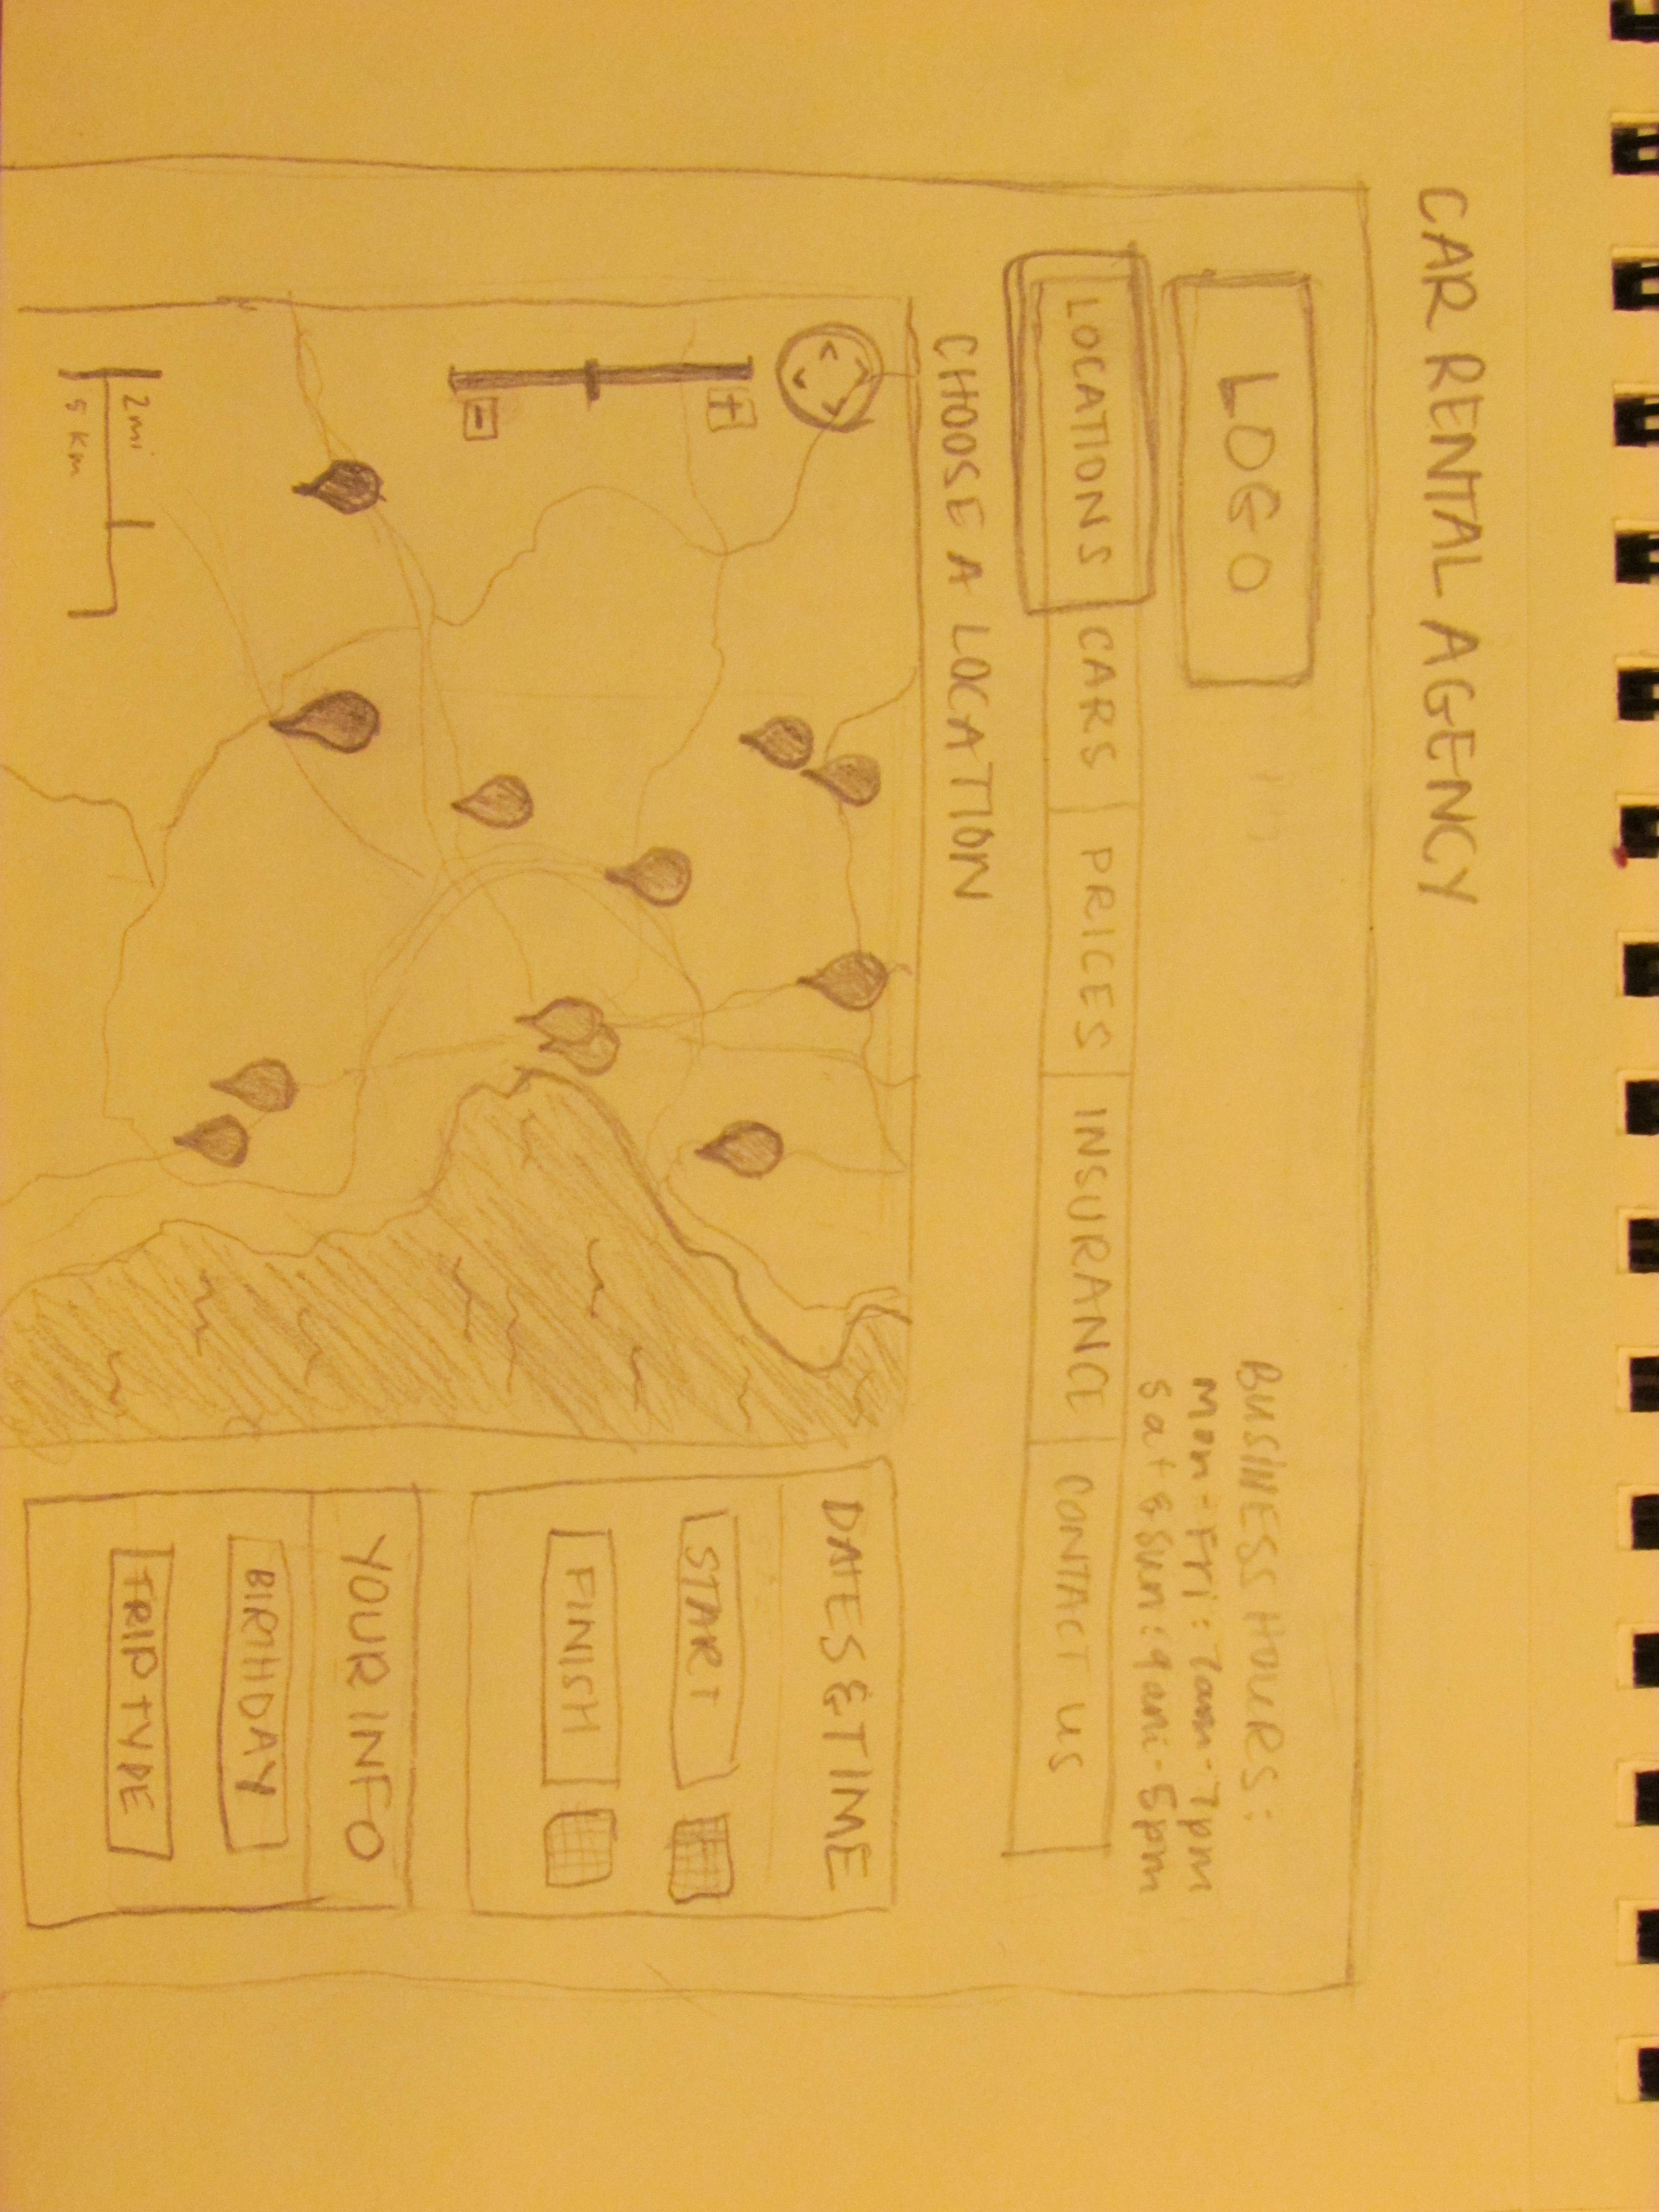 CAR RENTAL AGENCY
LOGO
BUSINESS HOURS:
Mon-Fri: 7am-7pm
Sat & Sun: 9am-5pm
LOCATIONS CARS PRICES INSURANCE CONTACT US
CHOOSE A LOCATION
+
-
2mi
5 Km
DATES & TIME
START
FINISH
YOUR INFO
BIRTHDAY
TRIP TYPE